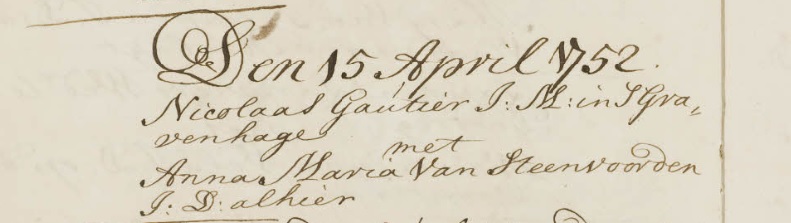 Den 15 April 1752.
Nicolaas Gautier J: M: in SGra,
venhage
met
Anna Maria Van Steenvoorden
J: D: alhier